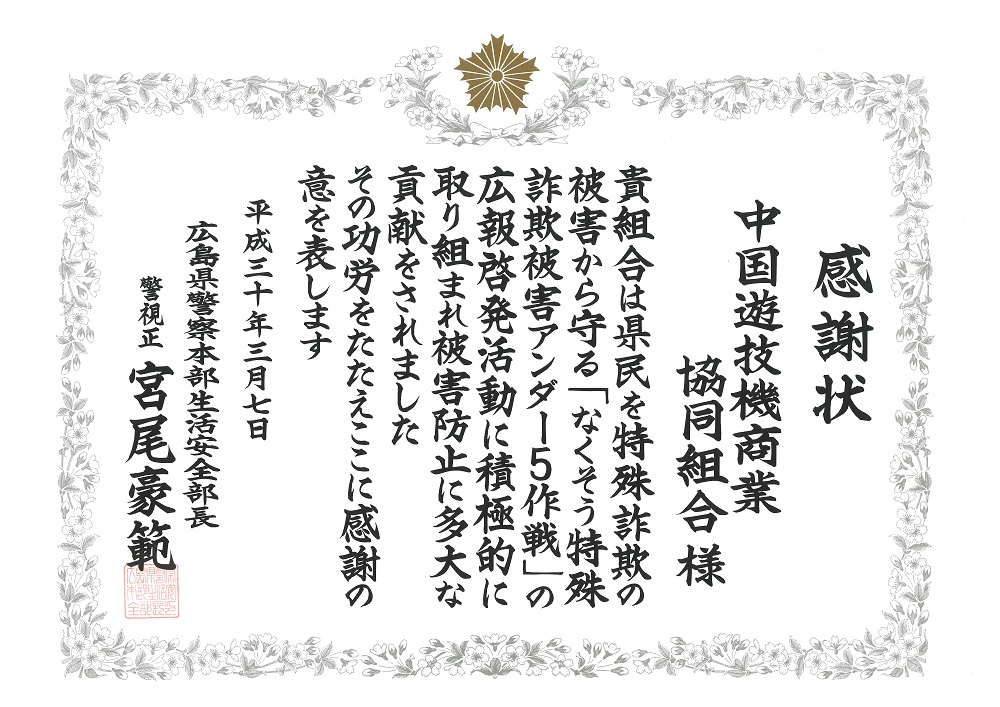 感謝状
中国遊技機商業
協同組合様
貴組合は県民を特殊詐欺の
被害から守る「なくそう特殊
詐欺被害アンダー5作戦」の
広報啓発活動に積極的に
取り組まれ被害防止に多大な
貢献をされました
その功労をたたえここに感謝の
意を表します
平成三十年三月七日
広島県警察本部生活安全部長
警視正 宮尾豪範